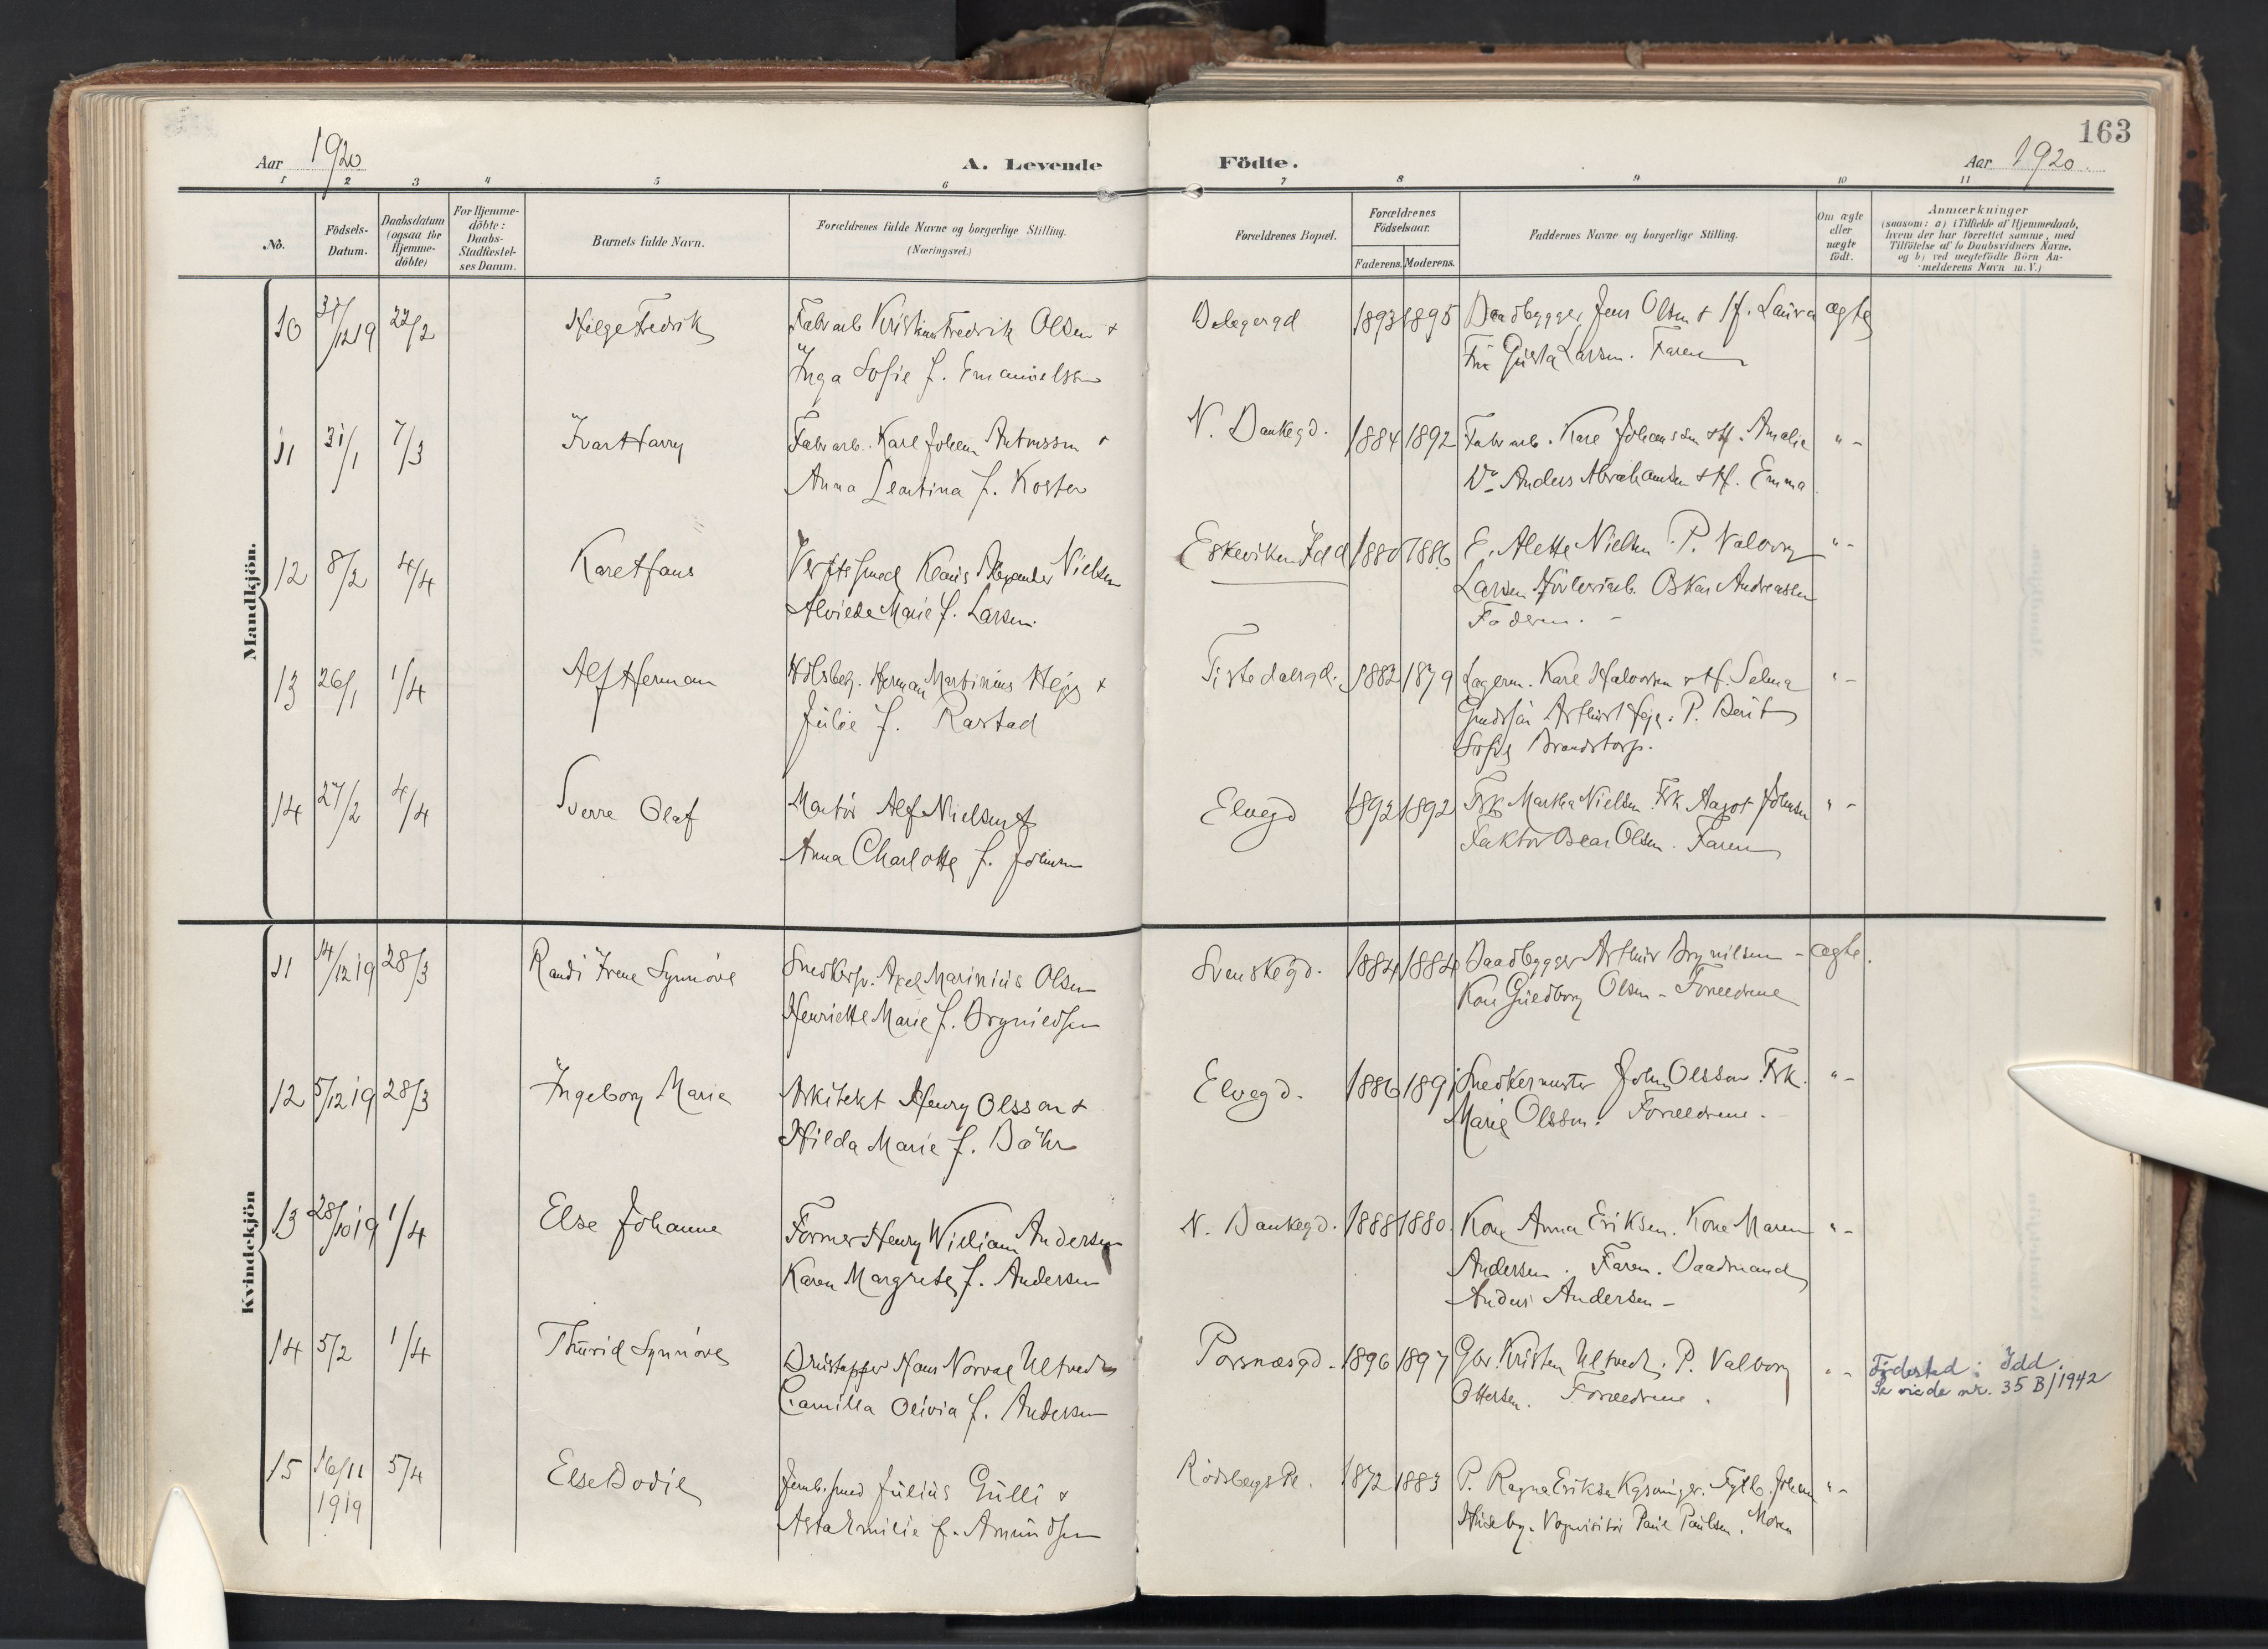 163
Aar 1920
A. Levende Födte.
Aar 1920.
1 2 3 4 5 6 7 8 9 10 11
No.
Födsels-
Datum.
Daabsdatum
(ogsaa for
Hjemme-
döbte)
For Hjemme-
döbte:
Daabs-
Stadfæstel-
ses Datum.
Barnets fulde Navn.
Forældrenes fulde Navne og borgerlige Stilling.
(Næringsvei.)
Forældrenes Bopæl.
Forældrenes
Födselsaar.
Faderens. Moderens.
Faddernes Navne og borgerlige Stilling.
Om ægte
eller
uægte
født.
Anmærkninger
(saasom: a) i Tilfælde af Hjemmedaab,
hvem der har forrettet samme, med
Tilföielse af to Daabsvidners Navne,
og b) ved uægtefödte Börn An-
melderens Navn m. V.)
Mandkjön.
10 31/12 19 22/2 Helge Fredrik Fabr arb Kristian Fredrik Olsen + 1893 1895 Baadbygger Jens Olsen + H. Laura ægte
Inga Sofie f. Emanuelsen Larsen. Faren
11 31/1 7/3 Ivar Harry Fabr arb. Karl Johan Antonssen + N. Bankegd. 1884 1892 Fabr arb. Karl Johanssen + H. Amalie " -
Anna Leontina f. Koster Do Anders Abrahamsen + H. Emma
12 8/2 4/4 Kåre Hans Verftssmed Klaus Alexander Nielsen Eskeviken Idd 1880 1886 E. Alette Nielsen. P. Valborg " -
Marie f. Larsen. Larsen Oskar Andreassen
Faderen. -
13 26/1 1/4 Alf Herman Herman Martinius + Tistedalsgd. 1882 1879 Lagerm. Karl Halvorsen + H. Selma " -
Julie f. Rastad P. Berit
Brandstorp.
14 27/2 4/4 Sverre Olaf Montør Alf Nielsen + Elvegd 1892 1892 Frk Martha Nielsen Frk Aagot Johnsen " -
Anna Charlotte f. Johnsen Faktor Oscar Olsen. Faren
Kvindekjön
11 14/12 19 28/3 Randi Irene Synnöve Snedkersv. Axel Marinius Olsen Svenskegd. 1884 1884 Baadbygger Arthur Brynildsen - ægte.
Henriette Marie f. Brynildsen Kone Guldborg Olsen - Forældrene
12 5/12 19 28/3 Ingeborg Marie Arkitekt Henry Olsson + Elvegd. 1886 1891 Snedkermester John Olsson Frk. " -
Hilda Marie f. Bähr Marie Olsson. Forældrene.
13 28/10 19 1/4 Else Johanne Former Henry William Andersen N. Bankegd. 1888 1880. Kone Anna Eriksen. Kone Maren " -
Karen Margrethe f. Andersen Andersen. Faren. Baadmand
Anders Andersen -
14 5/2 1/4 Thurid Synnöve Hans Norval Ultvedt Porsnæsgd. 1896 1897 Gbr. Kristen Ultvedt. P. Valborg " - Födested: Idd.
Camilla Olivia f. Andersen Ottersen. Forældrene. Se vielse nr. 35 B/1942
15 16/11 5/4 Else Bodil Jernb.smed Julius Gulli + Rödsbergs Pl. 1872 1883 P. Ragna Eriksen Fyrb. Johan " -
1919 Asta Emilie f. Amundsen Paul Paulsen. Moren